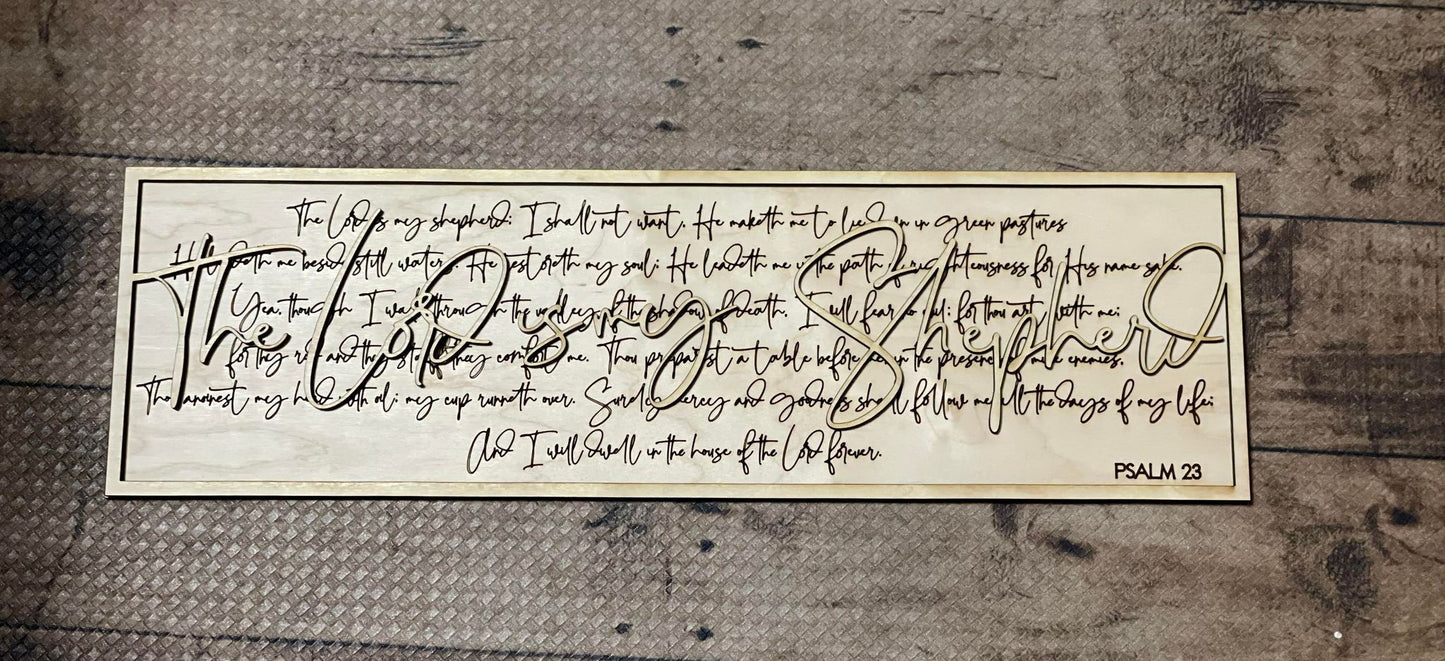 The Lord is my shepherd; I shall not want. He maketh me to lie down in green pastures
He leadeth me beside still waters. He restoreth my soul; He leadeth me in the path of righteousness for His name sake.
Yea, though I walk through the valley of the shadow of death, I will fear no evil: for thou art with me;
for thy rod and thy staff they comfort me. Thou preparest a table before me in the presence of mine enemies.
Thou anoinest my head with oil; my cup runneth over. Surely mercy and goodness shall follow me all the days of my life;
And I will dwell in the house of the Lord forever.
The Lord is my Shepherd
PSALM 23